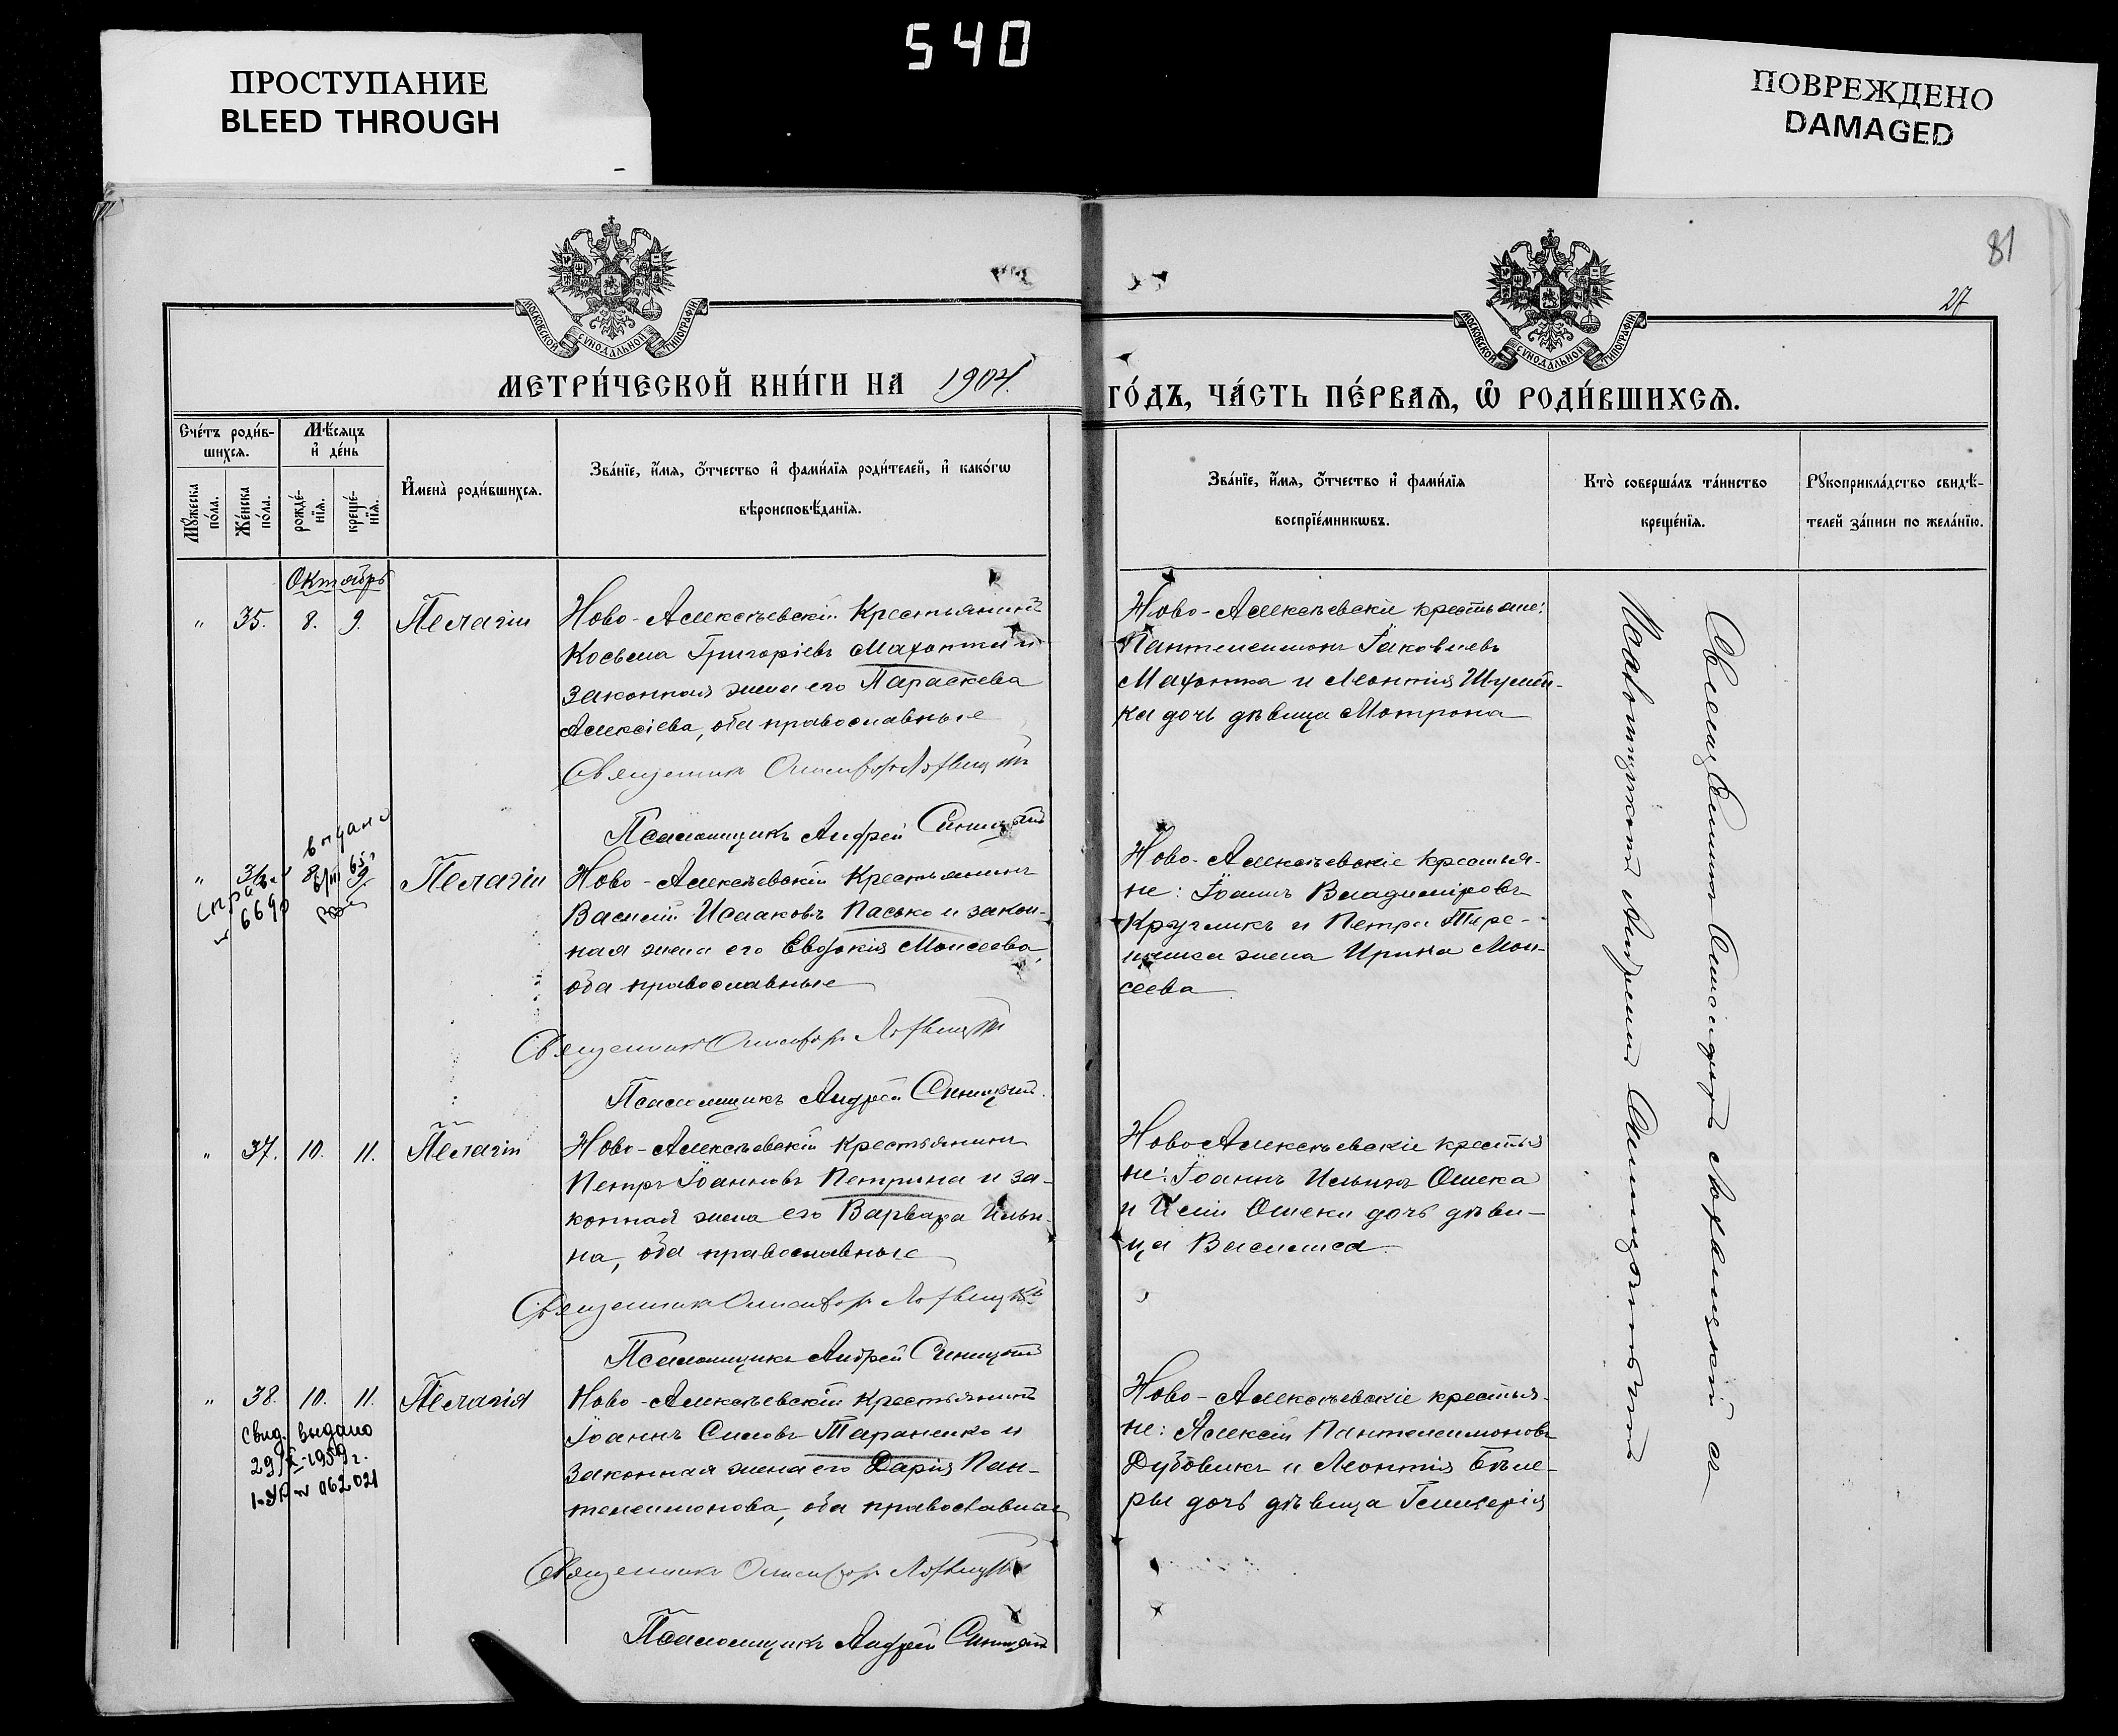 540
ПРОСТУПАНИЕ
BLEED THROUGH
ПОВРЕЖДЕНО
DAMAGED
81
27
МОСКОВСКОЙ СѴНОДАЛЬНОЙ ТИПОГРАФІИ
МОСКОВСКОЙ СѴНОДАЛЬНОЙ ТИПОГРАФІИ
МЕТРИ́ЧЕСКОЙ КНИ́ГИ НА 1904.
ГО́ДЪ, ЧА́СТЬ ПЕ́РВАЯ, Ѿ РОДИ́ВШИХСЯ.
Сче́тъ роди́в-
шихся.
Мѣ́сяцъ
и де́нь
Му́жеска
по́ла.
Же́нска
по́ла.
рожде́-
нія.
креще́-
нія.
Имена̀ роди́вшихся.
Зва́ніе, и́мя, о́тчество и фами́лія роди́телей, и како́гѡ
вѣроисповѣ́данія.
Зва́ніе, и́мя, о́тчество и фами́лія
воспріе́мникѡвъ.
Кто̀ соверша́лъ та́инство
креще́нія.
Рꙋкоприкла́дство свидѣ́-
телей за́писи по жела́нію.
Октябрь
" 35. 8. 9. Пелагія
Ново-Алексѣевскій крестьянинъ
Косьма Григоріевъ Махотка и
законная жена его Параскева
Алексіева, оба православные
Священникъ Онисифоръ Лохвицкій
Псаломщикъ Андрей Синицкій
Ново-Алексѣевскіе крестьяне:
Пантелеимонъ Іаковлевъ
Махотка и Леонтія Шулей-
ка дочь дѣвица Мотрона
" 36. 8. 9. Пелагія
выдано
6690
Ново-Алексѣевскій крестьянинъ
Василій Исааковъ Пасько и закон-
ная жена его Евдокія Моисеева,
оба православные
Священникъ Онисифоръ Лохвицкій
Псаломщикъ Андрей Синицкій.
Ново-Алексѣевскіе крестья-
не: Іоаннъ Владиміровъ
Кругликъ и Петра
жена Ирина Мои-
сеева
" 37. 10. 11. Пелагія
Ново-Алексѣевскій крестьянинъ
Петръ Іоанновъ Петрина и за-
конная жена его Варвара Ильи-
на, оба православные
Священникъ Онисифоръ Лохвицкій
Псаломщикъ Андрей Синицкій
Ново Алексѣевскіе крестья
не: Іоаннъ Ильинъ Ошека
и Иліи Ошеки дочь дѣви-
ца Василиса
" 38. 10. 11. Пелагія
Свид. выдано
29/X-1959 г.
I-УР № 062021
Ново-Алексѣевскій крестьянинъ
Іоаннъ Силовъ Тараненко и
законная жена его Дарія Пан-
телеимонова, оба православные
Священникъ Онисифоръ Лохвицкій
Псаломщикъ Андрей Синицкій
Ново-Алексѣевскіе крестья-
не: Алексій Пантелеимоновъ
Дубовикъ и Леонтія Бѣле-
ры дочь дѣвица Гликерія
Священникъ Онисифоръ Лохвицкій съ
Псаломщикомъ Андреемъ Синицкимъ